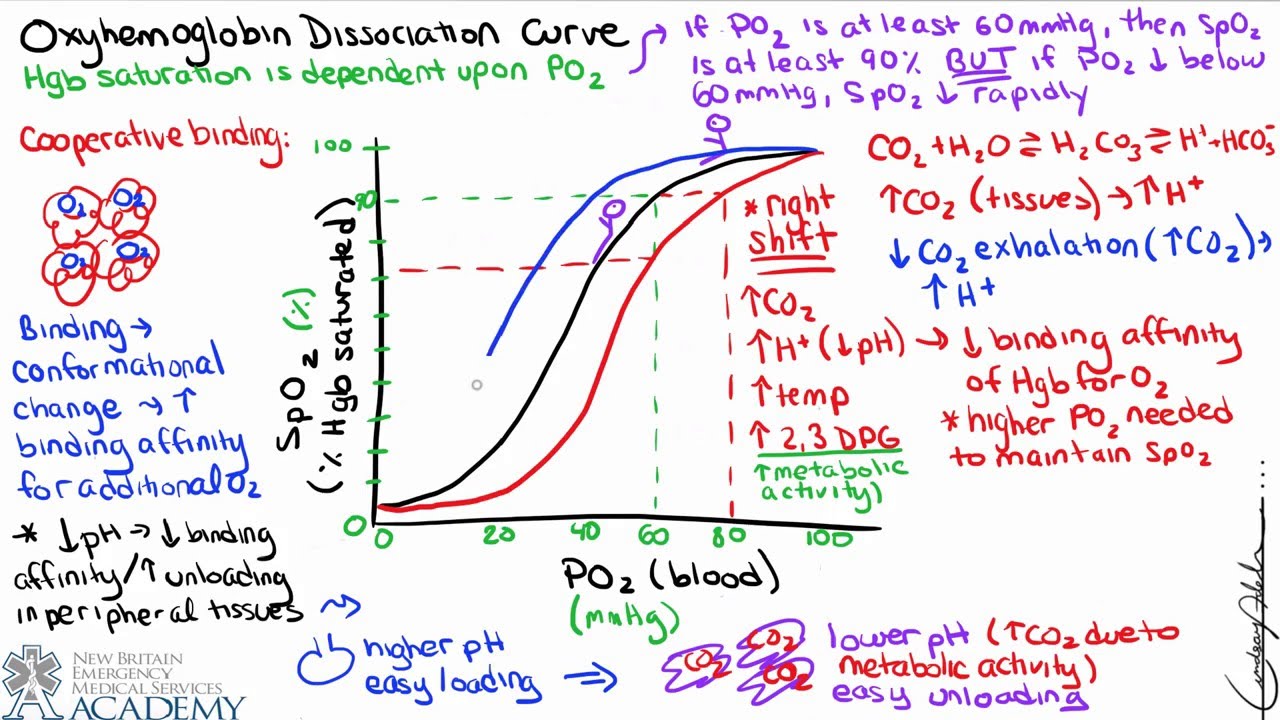 Oxyhemoglobin Dissociation Curve
Hgb saturation is dependent upon PO2
If PO2 is at least 60mmHg, then SpO2
is at least 90% BUT if PO2 ↓ below
60mmHg, SpO2 ↓ rapidly
Cooperative binding:
O2 O2
O2 O2
Binding →
conformational
change → ↑
binding affinity
for additional O2
* ↓pH → ↓ binding
affinity/↑ unloading
in peripheral tissues
SpO2 (%)
(% Hgb saturated)
100
90
0
0 20 40 60 80 100
PO2 (blood)
(mmHg)
* right
shift
↑CO2
↑H+ (↓pH) → ↓ binding affinity
of Hgb for O2
↑temp
↑ 2,3 DPG
↑metabolic
activity)
* higher PO2 needed
to maintain SpO2
CO2 + H2O ⇌ H2CO3 ⇌ H+ + HCO3-
↑CO2 (tissues) → ↑H+
↓ CO2 exhalation (↑CO2) →
↑ H+
higher pH
easy loading ⇒
CO2 CO2
CO2
lower pH (↑CO2 due to
metabolic activity)
easy unloading
NEW BRITAIN
EMERGENCY
MEDICAL SERVICES
ACADEMY